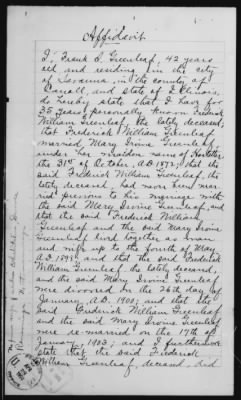 Affidavit
I, Frank S. Greenleaf, 42 years
old and residing in the city
of Savanna, in the county of
Carroll, and state of Illinois,
do hereby state that I have for
35 years personally known Fredrick
William Greenleaf, the lately deceased,
that Frederick William Greenleaf
married Mary Irvine Greenleaf,
under her maiden name of
the 31st of October A.D. 1872; that the
said Frederick William Greenleaf, the
lately deceased, had never been mar-
ried previous to his marriage with
the said Mary Irvine Greenleaf, and
that the said Frederick William
Greenleaf and the said Mary Irvine
Greenleaf lived together as man
and wife up to the fourth of May
A.D. 1898 and that the said Frederick
William Greenleaf, the lately deceased,
and the said Mary Irvine Greenleaf
were divorced on the 26th day of
January, A.D. 1900; and that the
said Frederick William Greenleaf
and the said Mary Irvine Greenleaf
were re-married on the 17th of
January, 1903; and I furthermore
state that the said Frederick
William Greenleaf, deceased, did